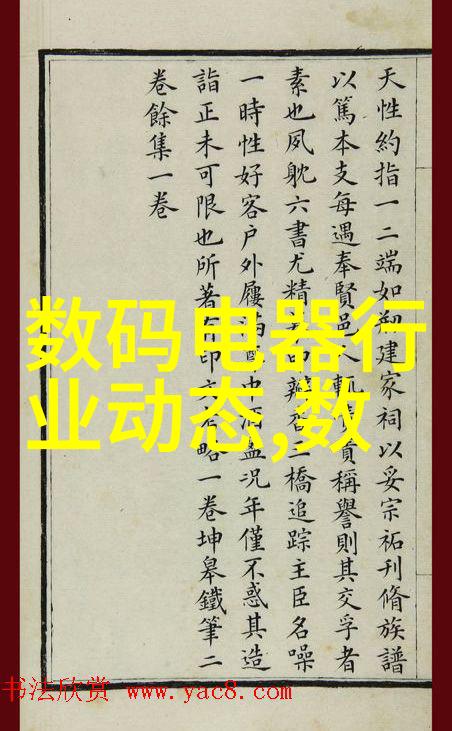 天性約指一二端如建家祠以妥宗祏刊脩族譜
以篤本支每遇奉賢邑稱譽則其交孚者
素也夙躭六書尤精三橋追踪主臣名噪
一時性好客户外屨滿况年僅不惑其造
詣正未可限也所著印略一卷坤皋鐵筆二
卷餘集一卷
数码电器行
业动态,数
书法欣赏 www.yac8.com